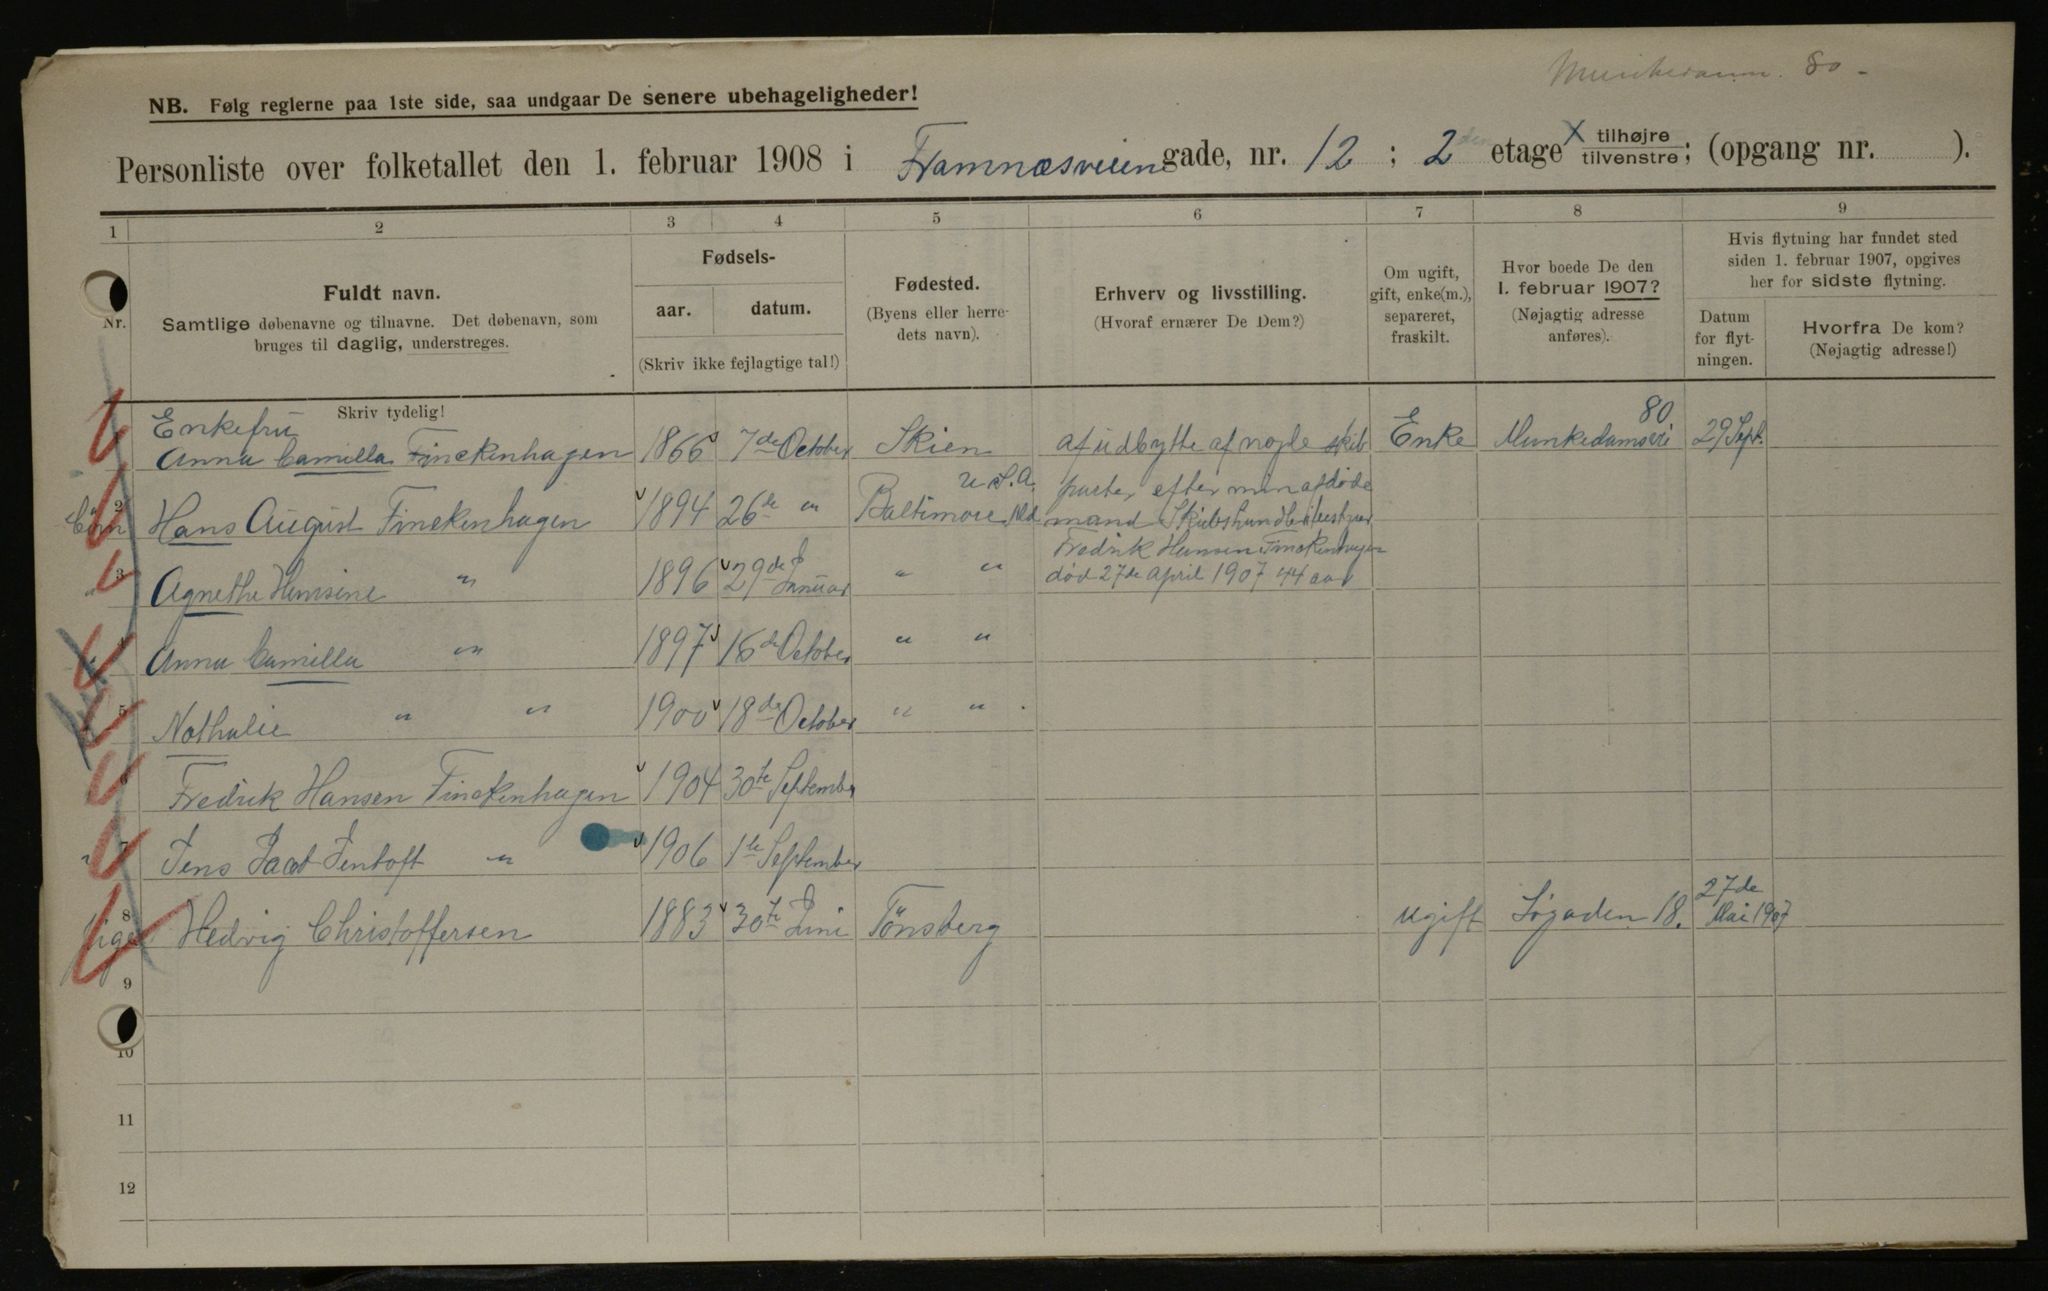 Munkedamv. 80 -
NB. Følg reglerne paa 1ste side, saa undgaar De senere ubehageligheder!
Personliste over folketallet den 1. februar 1908 i Framnæsveien gade, nr. 12 ; 2den etage X tilhøjre / tilvenstre; (opgang nr. ).
1 2 3 4 5 6 7 8 9
Nr.
Fuldt navn.
Samtlige døbenavne og tilnavne. Det døbenavn, som
bruges til daglig, understreges.
Skriv tydelig!
Fødsels-
aar. datum.
(Skriv ikke fejlagtige tal!)
Fødested.
(Byens eller herre-
dets navn).
Erhverv og livsstilling.
(Hvoraf ernærer De Dem?)
Om ugift,
gift, enke(m.),
separeret,
fraskilt.
Hvor boede De den
1. februar 1907?
(Nøjagtig adresse
anføres).
Hvis flytning har fundet sted
siden 1. februar 1907, opgives
her for sidste flytning.
Datum
for flyt-
ningen.
Hvorfra De kom?
(Nøjagtig adresse!)
Enkefru 80
Anna Camilla Finckenhagen 1866 7de October Skien af udbytte af nogle skib Enke Munkedamsvei 29 Sept.
U.S.A. parter efter min afdøde
Børn 2 Hans August Finckenhagen 1894 26de " Baltimore Md. mand Skibs
Fredrik Hansen Finckenhagen
" 3 Agnethe Hansine " 1896 29de Januar " " død 27de April 1907 44 aar
" 4 Anna Camilla " 1897 16de October " "
5 Nathalie " " 1900 18de October " "
6 Fredrik Hansen Finckenhagen 1904 30te September
" 7 Jens Jacob Jentoft " 1906 1te September
27de
8 Hedvig Christoffersen 1883 30te Juni Tönsberg ugift Søgaden 18. Mai 1907
9
10
11
12